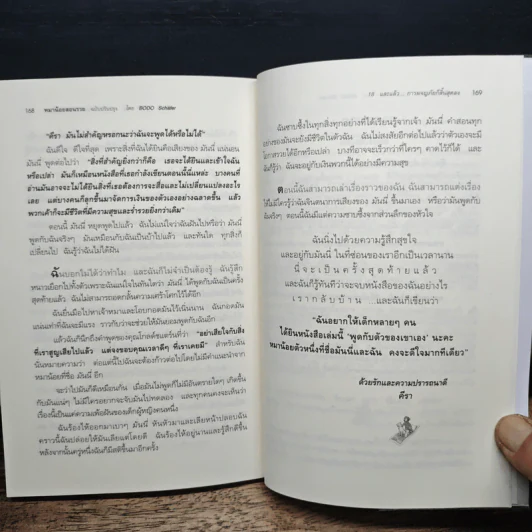 168 หมาน้อยสอนรวย ฉบับปรับปรุง โดย BODO Schäfer
"คีรา มันไม่สำคัญหรอกนะว่าฉันจะพูดได้หรือไม่ได้"
ฉันดีใจ ดีใจที่สุด เพราะทันใดที่ฉันได้ยินคือเสียงของ มันนี่ แน่นอน
มันนี่ พูดต่อไปว่า "สิ่งที่สำคัญยิ่งกว่าก็คือ เธอจะได้ยินและเข้าใจฉัน
หรือเปล่า มันก็เหมือนหนังสือที่เธอกำลังเขียนตอนนี้นี่แหละ บางคนที่
อ่านมันอาจจะไม่ได้ยินสิ่งที่เธอต้องการจะสื่อและไม่เปลี่ยนแปลงอะไร
เลย แต่บางคนก็ลุกขึ้นมาจัดการเงินของตัวเองอย่างฉลาดขึ้น แล้ว
พวกเค้าก็จะมีชีวิตที่มีความสุขและร่ำรวยยิ่งกว่าเดิม"
ตอนนี้ มันนี่ หยุดพูดไปแล้ว ฉันไม่แน่ใจว่าฉันฝันไปหรือว่า มันนี่
พูดกับฉันจริงๆ มันเหมือนกับฉันเป็นบ้าไปแล้ว และทันใด ทุกสิ่งก็
เปลี่ยนไป ฉันรู้ว่าฉันไม่ได้ฝัน
ฉันบอกไม่ได้ว่าทำไม และฉันก็ไม่จำเป็นต้องรู้ ฉันรู้สึก
หนาวเยือกไปทั้งตัวเพราะแน่ใจในทันใดว่า มันนี่ ได้พูดกับฉันเป็นครั้ง
สุดท้ายแล้ว ฉันไม่สามารถอดกลั้นความเศร้าโศกไว้ได้อีก
ฉันยื่นมือไปหาเจ้าหมาและโอบกอดมันไว้เนิ่นนาน ฉันกอดมัน
แน่นเท่าที่ฉันจะมีแรง ราวกับว่าจะช่วยให้มันยอมพูดกับฉันอีก
แล้วฉันก็นึกถึงคำพูดของคุณโกลด์ชเตร์นที่ว่า "อย่าเสียใจกับสิ่ง
ที่เราสูญเสียไปแล้ว แต่จงขอบคุณเวลาดีๆ ที่เราเคยมี" สำหรับฉัน
นั่นหมายความว่า ต่อแต่นี้ไปฉันจะต้องก้าวต่อไปโดยไม่มีคำแนะนำจาก
หมาน้อยที่ชื่อ มันนี่ อีก
จะว่าไปมันก็ดีเหมือนกัน เมื่อมันไม่พูดก็ไม่มีอันตรายใดๆ เกิดขึ้น
กับมันแน่ๆ ไม่มีใครอยากจะจับมันไปทดลอง และทุกคนคงจะเห็นว่า
เรื่องนี้เป็นแค่ความเพ้อฝันของเด็กผู้หญิงคนหนึ่ง
ฉันร้องไห้ออกมาเบาๆ มันนี่ หันหัวมาและเลียหน้าปลอบฉัน
คราวนี้ฉันปล่อยให้มันเลียแต่โดยดี ฉันร้องไห้อยู่นานและรู้สึกดีขึ้น
หลังจากนั้นครู่หนึ่งฉันก็มีสติดีขึ้นมาอีกครั้ง
18 และแล้ว... การผจญภัยก็สิ้นสุดลง 169
ฉันซาบซึ้งในทุกสิ่งทุกอย่างที่ได้เรียนรู้จากเจ้า มันนี่ คำสอนทุก
อย่างของมันจะยังมีชีวิตในตัวฉัน ฉันไม่สงสัยอีกต่อไปแล้วว่าตัวเองจะมี
โอกาสรวยได้อีกหรือเปล่า บางทีอาจจะเร็วกว่าที่ใครๆ คาดไว้ก็ได้ และ
ฉันก็รู้ว่า ฉันจะอยู่กับเงินพวกนี้ได้อย่างมีความสุข
ตอนนี้ฉันสามารถเล่าเรื่องราวของฉัน ฉันสามารถแต่งเรื่อง
ที่ไม่มีใครรู้ว่าฉันจินตนาการเสียงของ มันนี่ ขึ้นมาเอง หรือว่ามันพูดกับฉัน
จริงๆ ตอนนี้ฉันมีแต่ความซาบซึ้งจากส่วนลึกของหัวใจ
ฉันนิ่งไปด้วยความรู้สึกสุขใจ
และอยู่กับมันนี่ ในที่ซ่อนของเราอีกเป็นเวลานาน
นี่จะเป็นครั้งสุดท้ายแล้ว
และฉันก็รู้ทันทีว่าจะจบหนังสือของฉันอย่างไร
เรากลับบ้าน ...และฉันก็เขียนว่า
"ฉันอยากให้เด็กหลายๆ คน
ได้ยินหนังสือเล่มนี้ 'พูดกับตัวของเขาเอง' นะคะ
หมาน้อยตัวหนึ่งที่ชื่อมันนี่และฉัน คงจะดีใจมากทีเดียว"
ด้วยรักและความปรารถนาดี
คีรา